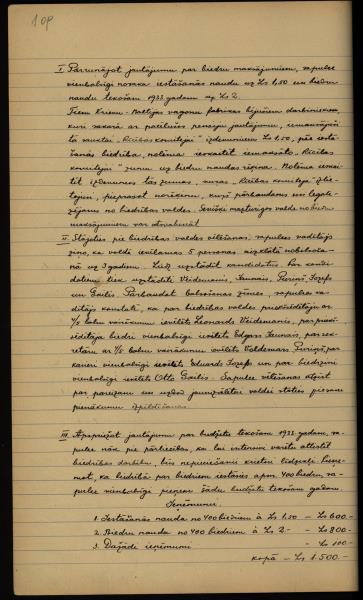 109
I Pārrunājot jautājumu par biedru maksājumiem, sapulce
vienbalsīgi nosaka iestāšanās naudu uz Ls 1,50 un biedru
naudu tekošam 1933 gadam uz Ls 2
Tiem bijušiem darbiniekiem,
kuri sakarā ar pensiju jautājumu, iemaksājuši
"Rīcības komitejai" izdevumiem Ls 1.50, pēc iestā-
šanās biedrībā, nolēma ieskaitīt iemaksāto "Rīcības
komitejai" sumu uz biedru naudas rēķina. Nolēma ieskai-
tīt izdevumos tās sumas, kuras "Rīcības komiteja" izlie-
tojusi, pieprasot norēķinu, kurš pārbaudams un legali-
zējams no biedrības valdes. Sevišķi maztūrīgos valde no
maksājumiem var atsvabināt
II Stājoties pie biedrības valdes vēlēšanām, sapulces vadītājs
ziņo, ka valdē ievēlamas 5 personas aizklātā nobalsoša-
nā uz 3 gadiem. Tiek uzstādīti kandidatus. Par kandi-
datiem tiek uzstādīti Veidemanis, Jaunais, Juriņš, Jozefs
un Gailis Pārbaudot balsošanas zīmes, sapulces va-
dītājs konstatē, ka par biedrības valdes priekšsēdētāju ar
4/5 balsu vairākumu ievēlēts Leonards Veidemanis, par priekš-
sēdētāja biedri vienbalsīgi ievēlēts Edgars Jaunais, par sekre-
tāru ar 4/5 balsu vairākumu ievēlēts Voldemars Juriņš, par
kasieri vienbalsīgi ievēlēts Eduards Jozefs un par biedrzini
vienbalsīgi ievēlēts Otto Gailis. Sapulce vēlēšanas atzīst
par pareizām un uzdod jaunizvēlētai valdei stāties pie savu
pienākumu izpildīšanas
III Apspriežot jautājumu par budžetu tekošam 1933 gadam, sa-
pulce nāk pie pārliecības, ka lai intensīvi varētu attīstīt
biedrības darbību, būs nepieciešami krietni līdzekļi. Pieņe-
mot, ka biedrībā par biedriem iestāsies apm. 400 biedru, sa-
pulce vienbalsīgi pieņem šādu budžetu tekošam gadam.
Ieņēmumi
1. Iestāšanās nauda no 400 biedriem à Ls 1,50 – Ls 600.–
2. Biedru nauda no 400 biedriem à Ls 2.– – Ls 800.–
3. Dažādi ieņēmumi – Ls 100.–
kopā – Ls 1.500.–